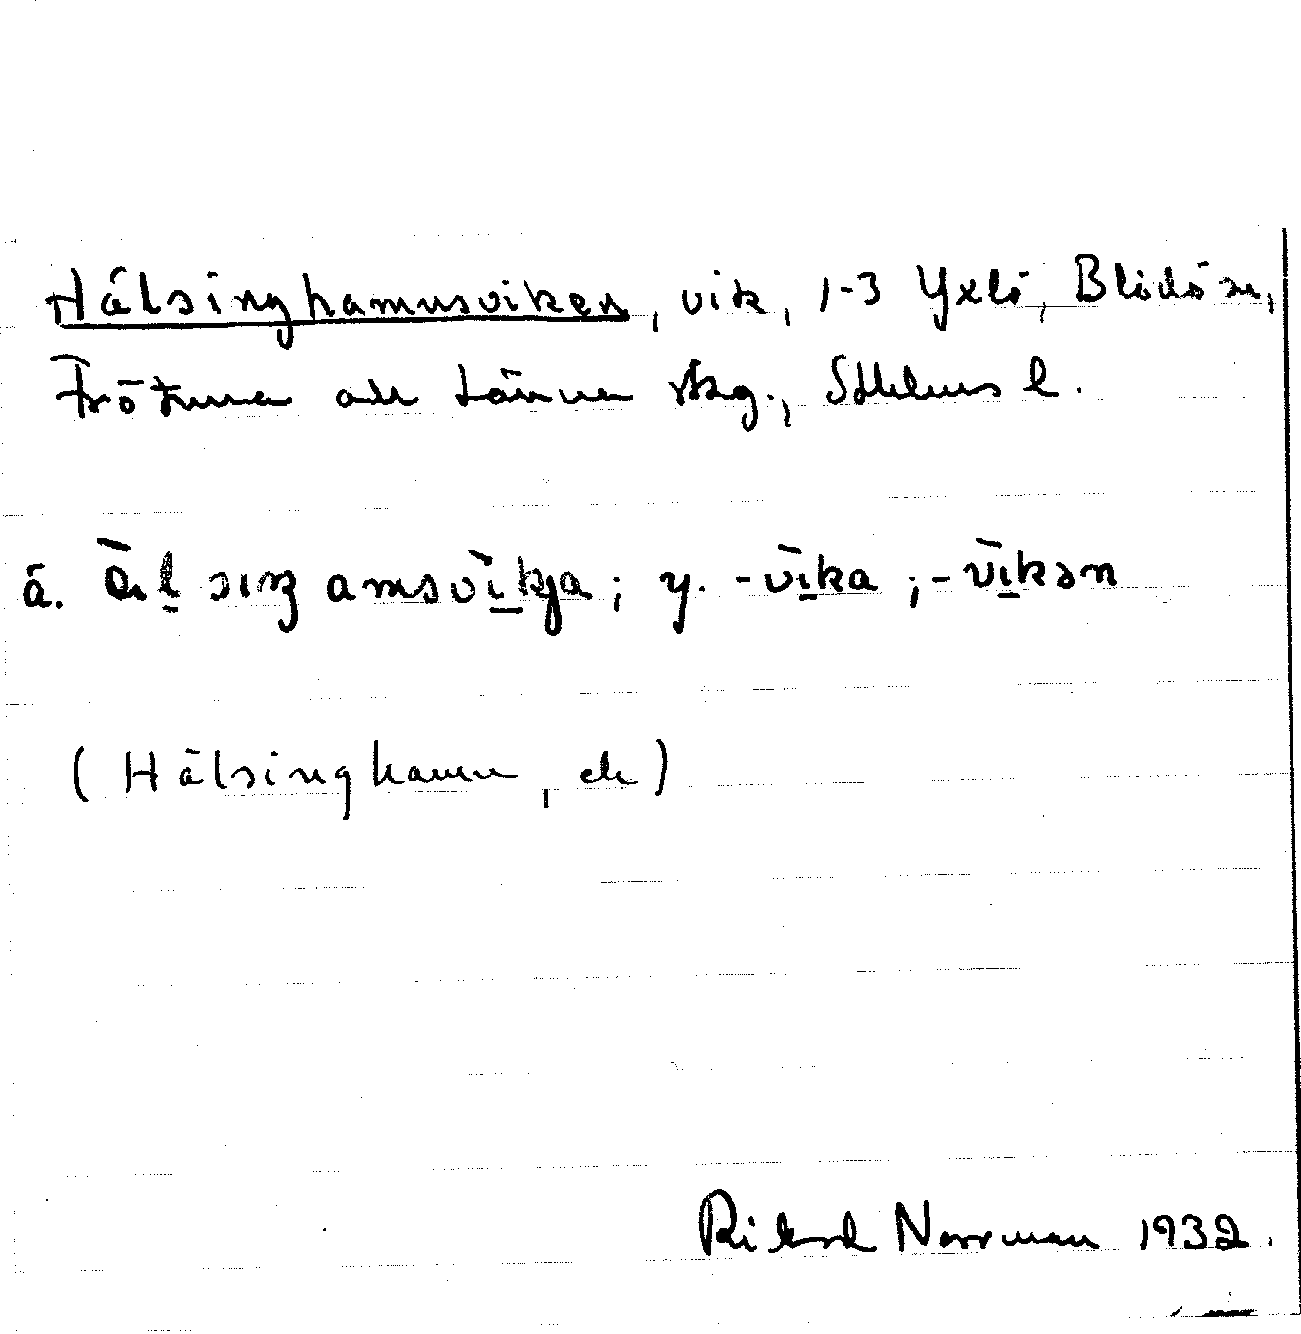 Hälsinghamnsviken, vik, 1-3 Yxlö, Blidö sn,
Frötuna och Länna skg., Sthlms l.
ä. ...amsvikja; y. -vika; -vikən
(Hälsinghamn, ds)
Rikard Norrman 1932.